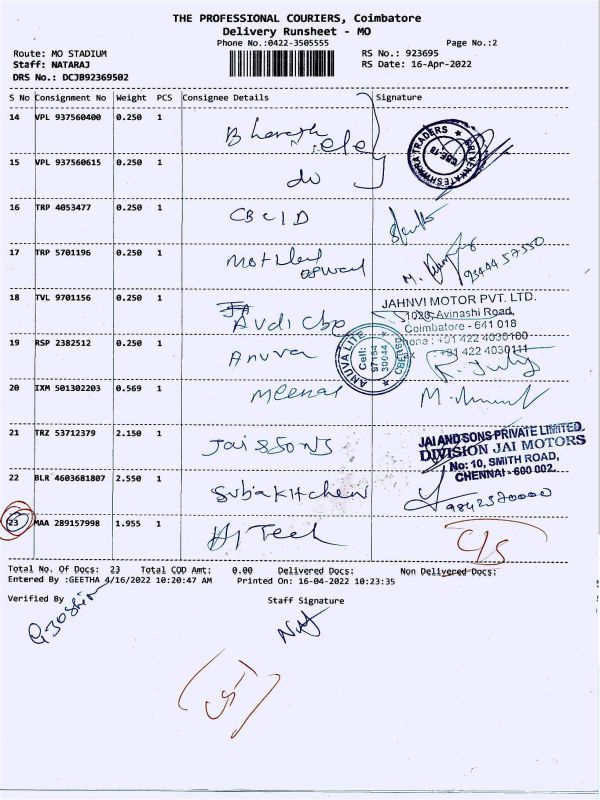 THE PROFESSIONAL COURIERS, Coimbatore
Delivery Runsheet - MO
Phone No.:0422-3505555 Page No.:2
Route: MO STADIUM RS No.: 923695
Staff: NATARAJ RS Date: 16-Apr-2022
DRS No.: DCJB92369502
S No Consignment No Weight PCS Consignee Details Signature
14 VPL 937560400 0.250 1 Bharath ele
SRI VENKATESHWARA TRADERS CBE-18
15 VPL 937560615 0.250 1 do
16 TRP 4053477 0.250 1 CBCID
17 TRP 5701196 0.250 1 Motilal oswal M. 9344457550
18 TVL 9701156 0.250 1 Audi Cbe
JAHNVI MOTOR PVT. LTD.
1020, Avinashi Road,
Coimbatore - 641 018
Phone : +91 422 4030100
+91 422 4030111
19 RSP 2382512 0.250 1 Anuva
ANUVA LITE Cell: 97154 30044
20 IXM 501302203 0.569 1 Meenal
21 TRZ 53712379 2.150 1 Jai SSONS
JAI AND SONS PRIVATE LIMITED.
DIVISION JAI MOTORS
No: 10, SMITH ROAD,
CHENNAI - 600 002.
22 BLR 4603681807 2.550 1 Suba Kitchen 9842570000
23 MAA 289157998 1.955 1 Hi Tech C/S
Total No. Of Docs: 23 Total COD Amt: 0.00 Delivered Docs: Non Delivered Docs:
Entered By :GEETHA 4/16/2022 10:20:47 AM Printed On: 16-04-2022 10:23:35
Verified By Staff Signature